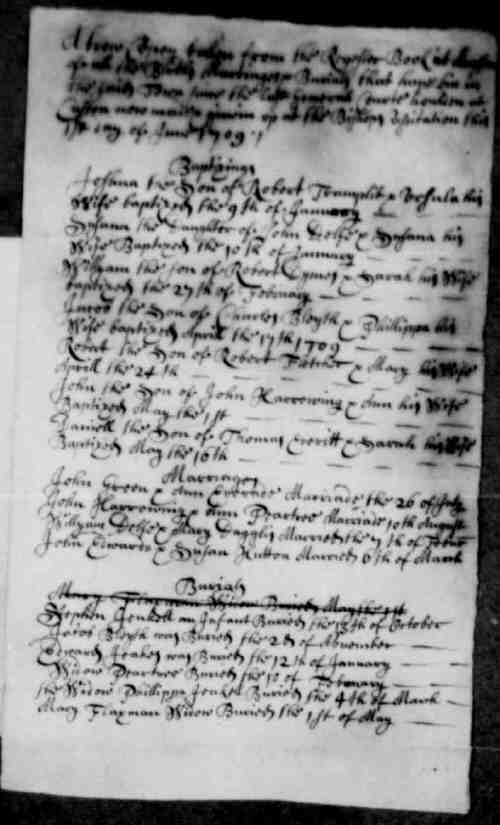 A trew Copey taken from the Register Book of
of all the Births Marriages & Burials that have bin in
the said Town since the last Generall Courte houlden at
now given up at the Bishops Visitation this
1st day of June 1709
Baptizings
Joshua the Son of Robert Tramplit & Ursula his
Wife baptized the 9th of January
Susana the Daughter of John Dolfe & Susana his
Wife Baptized the 10th of January
William the son of Robert & Sarah his Wife
baptized the 27th of February
Jacob the Son of Charles Bloyth & Phillippa his
Wife baptized Aprill the 17th 1709
Robert the Son of Robert Fletcher & Mary his Wife
Aprill the 24th
John the Son of John Harrowing & Ann his Wife
Baptized May the 1st
the Son of Thomas Everitt & Sarah his Wife
Baptized May the 10th
Marriages
John Green & Ann Marriade the 26 of July
John Harrowing & Ann Peartree Marriade 10th August
William Dolfe & Mary Married the 7th of
John Edwards & Susan Hutton Married 6th of March
Burials
Mary Flaxman Widow Buried May the 1st
Stephen Jenkell an Infant Buried the 13th of October
Jacob Bloyth was Buried the 2d of November
Edward was Buried the 12th of January
Widow Peartree Buried the 10 of February
the Widow Phillippa Jenkel Buried the 4th of March
Mary Flaxman Widow Buried the 1st of May